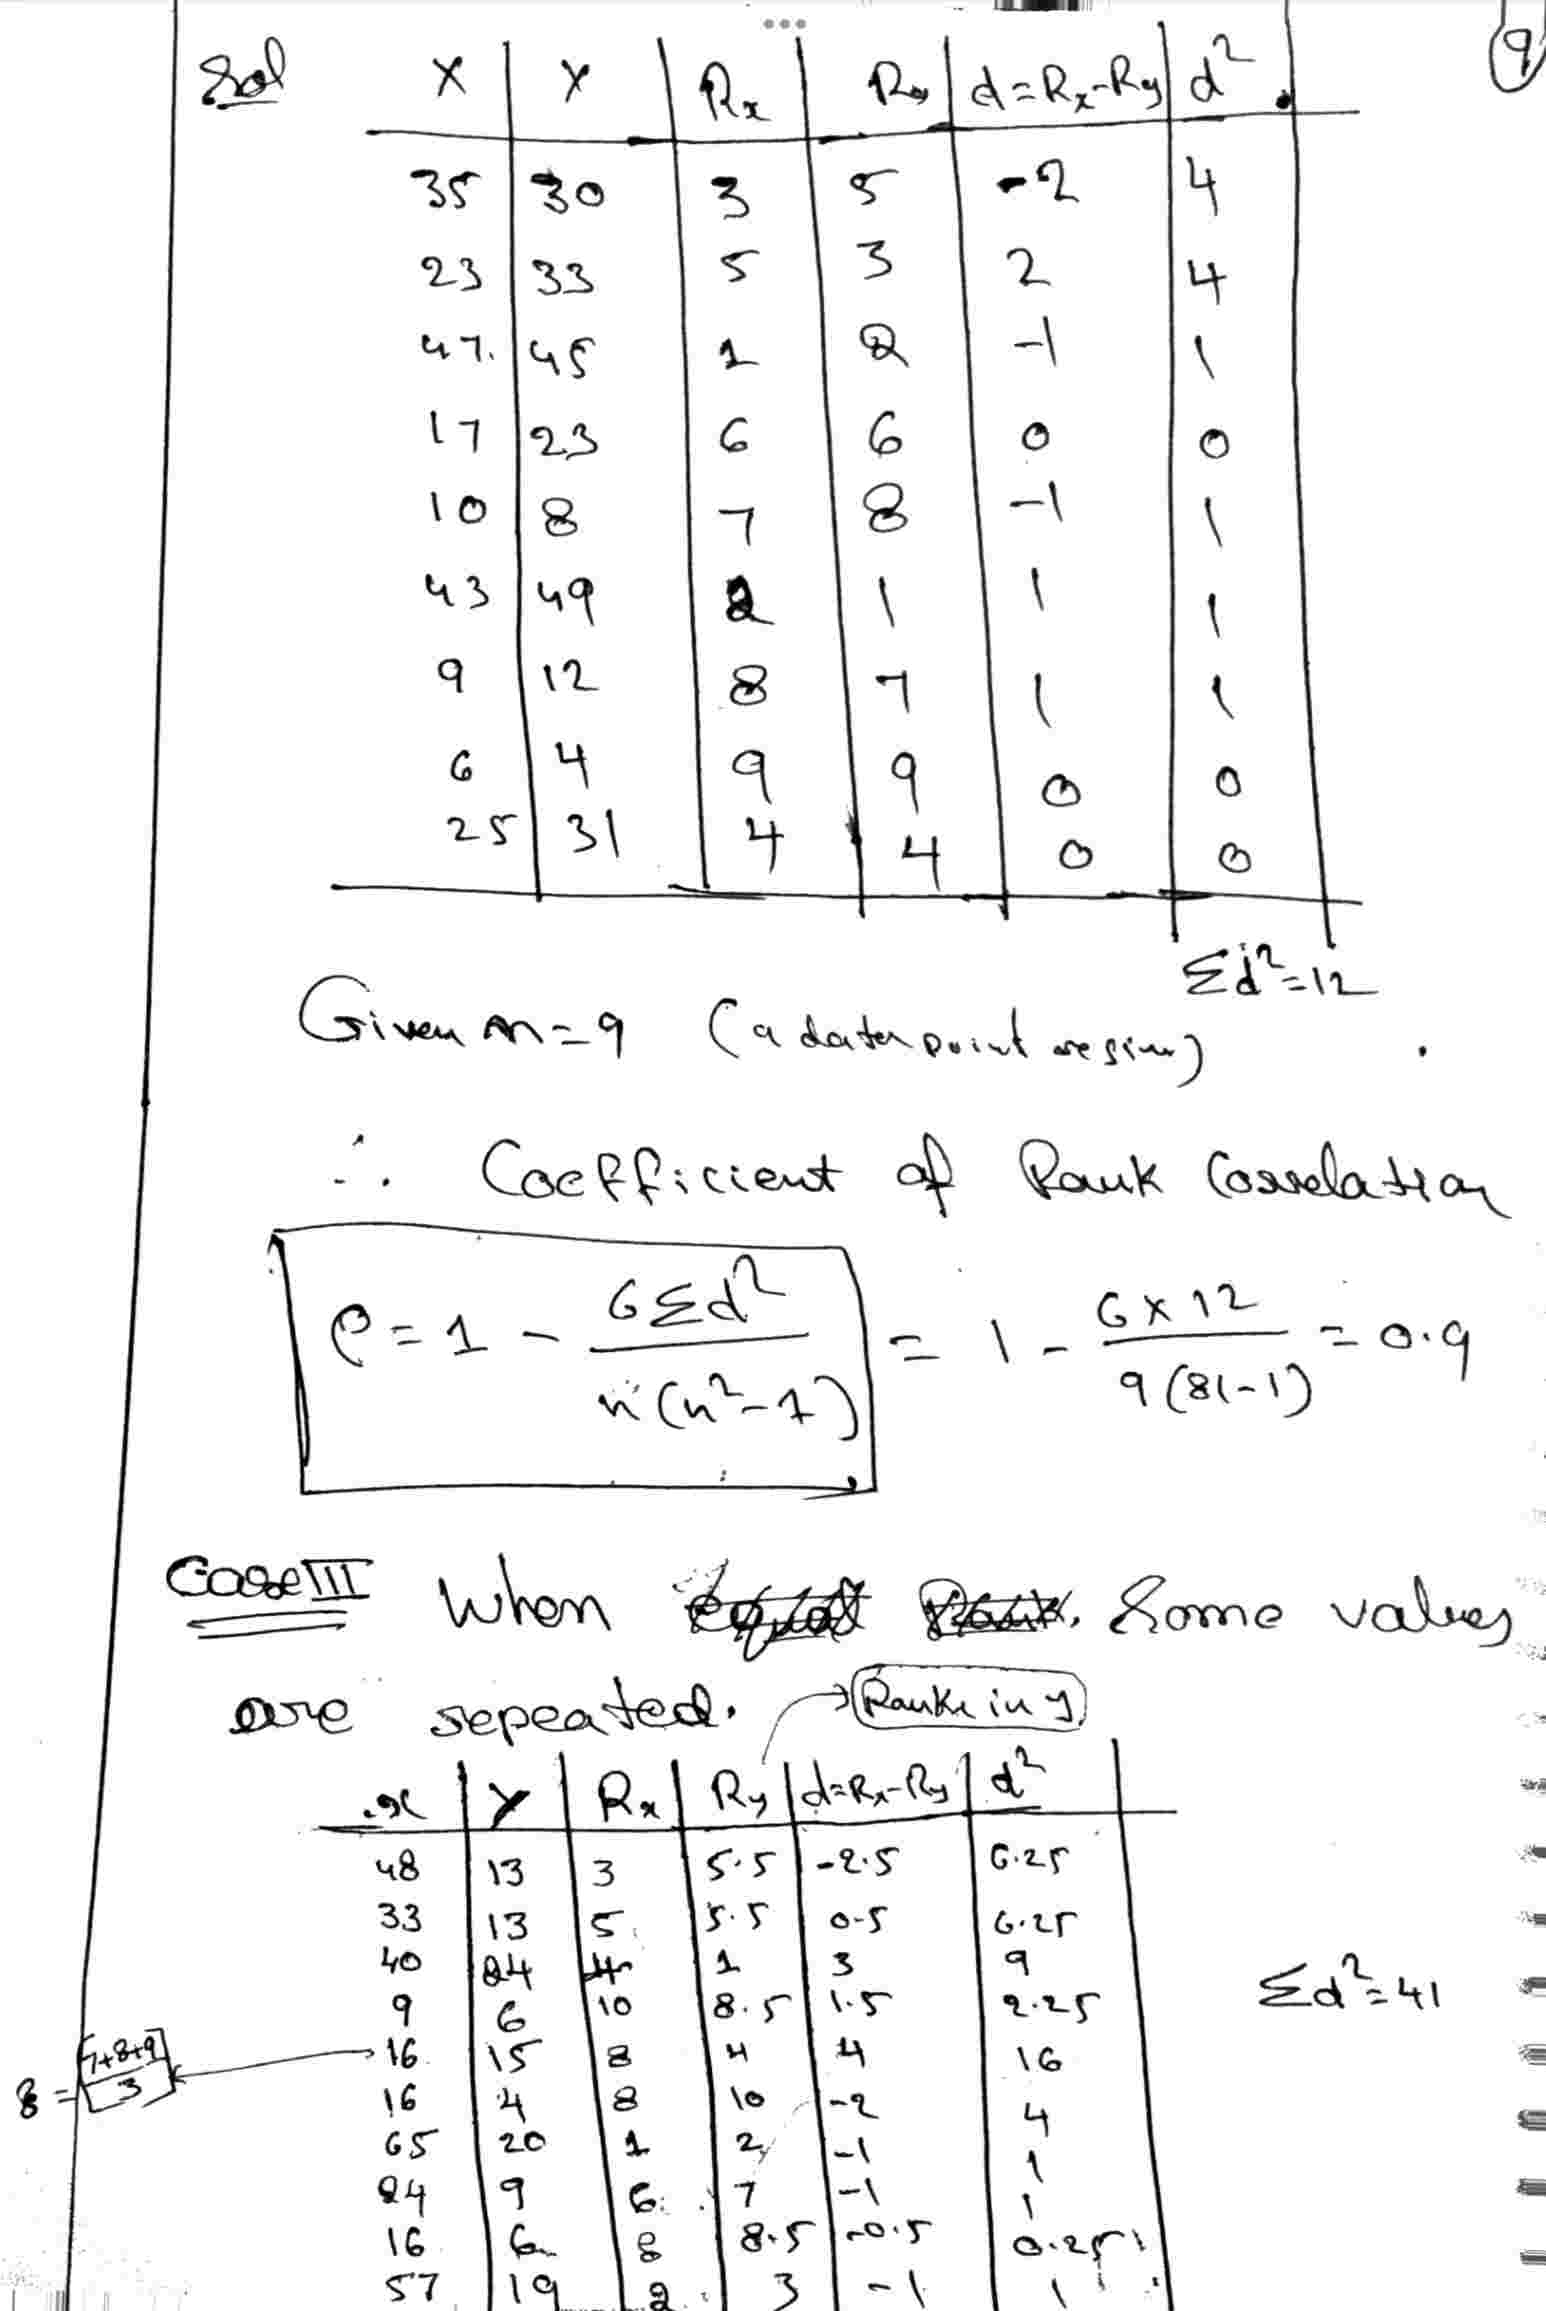 9
Sol X Y Rx Ry d=Rx-Ry d²
35 30 3 5 -2 4
23 33 5 3 2 4
47. 45 1 2 -1 1
17 23 6 6 0 0
10 8 7 8 -1 1
43 49 2 1 1 1
9 12 8 7 1 1
6 4 9 9 0 0
25 31 4 4 0 0
Σd²=12
Given n=9 (9 data point
∴ Coefficient of Rank Correlation
ρ = 1 - 6Σd² / n(n²-1) = 1 - 6×12 / 9(81-1) = 0.9
Case III When equal Rank. Some values
are repeated. Ranks in y
x Y Rx Ry d=Rx-Ry d²
48 13 3 5.5 -2.5 6.25
33 13 5 5.5 0.5 6.25
40 24 4 1 3 9
Σd²=41
9 6 10 8.5 1.5 2.25
8 = [7+8+9] / 3
16 15 8 4 4 16
16 4 8 10 -2 4
65 20 1 2 -1 1
24 9 6 7 -1 1
16 6 8 8.5 -0.5 0.25
57 19 2 3 -1 1